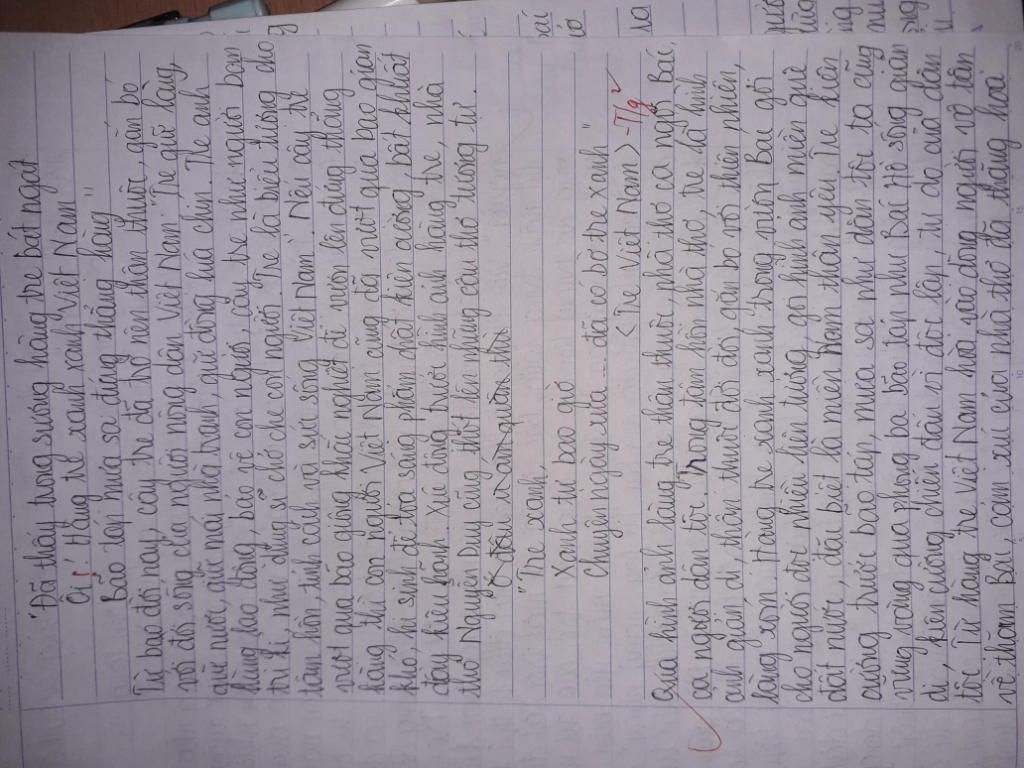 "Đã thấy trong sương hàng tre bát ngát
Ôi! Hàng tre xanh xanh Việt Nam
Bão táp mưa sa đứng thẳng hàng"
Từ bao đời nay, cây tre đã trở nên thân thuộc, gắn bó
với đời sống của người nông dân Việt Nam. "Tre giữ làng,
giữ nước, giữ mái nhà tranh, giữ đồng lúa chín. Tre anh
hùng lao động, bảo vệ con người, cây tre như người bạn
tri kỉ, như điểm, sự chở che con người. Tre là biểu tượng cho
tâm hồn, tính cách và sức sống Việt Nam". Nếu cây tre
vượt qua bão giông khắc nghiệt để vươn lên đứng thẳng
hàng thì con người Việt Nam cũng đã vượt qua bao gian
khó, hi sinh để tỏa sáng phẩm chất kiên cường, bất khuất
đầy kiêu hãnh. Xúc động trước hình ảnh hàng tre, nhà
thơ Nguyễn Duy cũng thốt lên những câu thơ tương tự.
"Tre xanh,
Xanh tự bao giờ
Chuyện ngày xưa ... đã có bờ tre xanh"
<Tre Việt Nam> -T/g
Qua hình ảnh làng tre thân thuộc, nhà thơ ca ngợi Bác,
ca người dân tôi. Trong tâm hồn nhà thơ, tre là hình
ảnh giản dị, thân thuộc đời đời gắn bó với thiên nhiên,
làng xóm. Hàng tre xanh trong vườn Bác gợi
cho người đọc nhiều liên tưởng, gợi hình ảnh miền quê
đất nước, đặc biệt là miền Nam thân yêu. Tre kiên
cường trước bão táp, mưa sa như dân tộc ta cũng
vững vàng qua phong ba bão táp như Bác Hồ sống giản
dị, kiên cường chiến đấu vì độc lập, tự do của dân
tộc. Từ hàng tre Việt Nam hòa vào dòng người vô tận
về thăm Bác, cảm xúc của nhà thơ đã thăng hoa